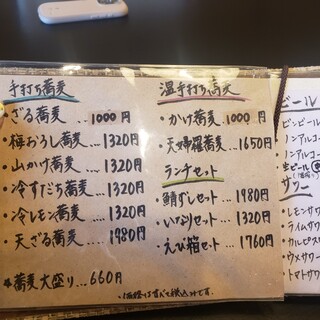 手打ち蕎麦
・ざる蕎麦...1000円
・梅おろし蕎麦...1320円
・山かけ蕎麦...1320円
・冷すだち蕎麦...1320円
・冷レモン蕎麦...1320円
・天ざる蕎麦...1980円
蕎麦大盛り...660円
温手打ち蕎麦
・かけ蕎麦...1000円
・天婦羅蕎麦...1650円
ランチセット
・鯖ずしセット...1980円
・いなりセット...1320円
・えび箱セット...1760円
・価格は すべて税込みです。
ビール
ビンビール
ノンアルコー
ノンアルコー
生ビール
サワー
・レモンサワ
・ライムサワ
・カルピス
・ウメサワー
・トマトサワ